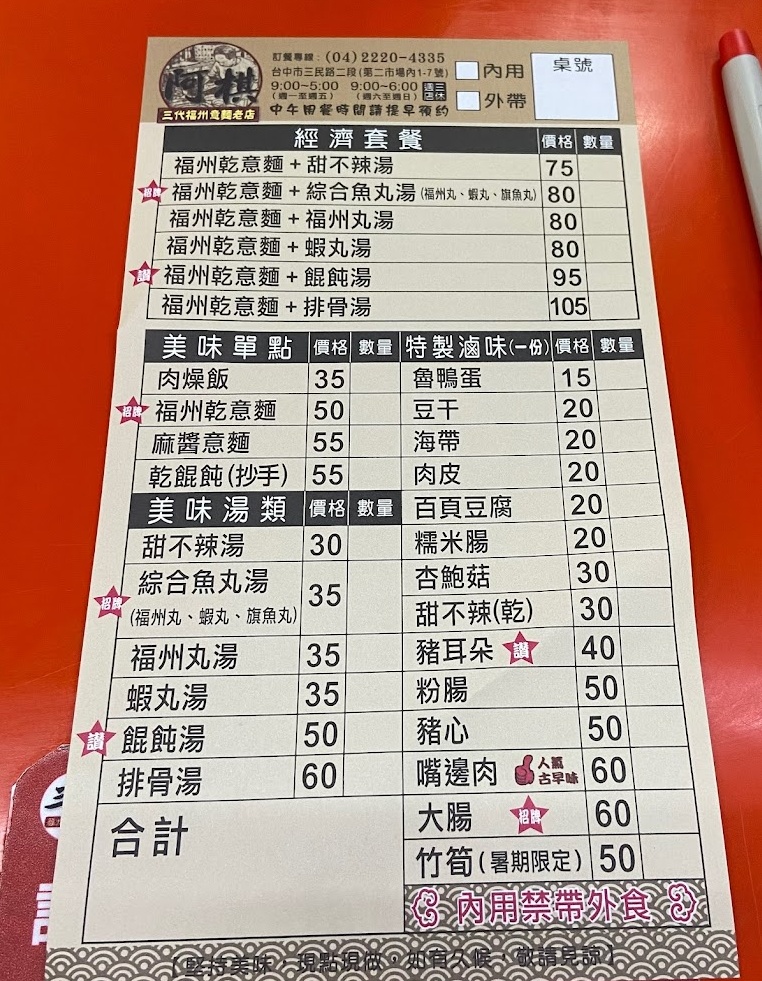 阿棋
三代福州意麵老店
訂餐專線：(04)2220-4335
台中市三民路二段(第二市場內1-7號)
9:00~5:00 9:00~6:00 週三店休
(週一至週五) (週六至週日)
中午用餐時間請提早預約
內用
外帶
桌號
經濟套餐 價格 數量
福州乾意麵+甜不辣湯 75
招牌 福州乾意麵+綜合魚丸湯(福州丸、蝦丸、旗魚丸) 80
福州乾意麵+福州丸湯 80
福州乾意麵+蝦丸湯 80
讚 福州乾意麵+餛飩湯 95
福州乾意麵+排骨湯 105
美味單點 價格 數量
肉燥飯 35
招牌 福州乾意麵 50
麻醬意麵 55
乾餛飩(抄手) 55
美味湯類 價格 數量
甜不辣湯 30
招牌 綜合魚丸湯 35
(福州丸、蝦丸、旗魚丸)
福州丸湯 35
蝦丸湯 35
讚 餛飩湯 50
排骨湯 60
合計
特製滷味(一份) 價格 數量
魯鴨蛋 15
豆干 20
海帶 20
肉皮 20
百頁豆腐 20
糯米腸 20
杏鮑菇 30
甜不辣(乾) 30
豬耳朵 讚 40
粉腸 50
豬心 50
嘴邊肉 人氣古早味 60
大腸 招牌 60
竹筍(暑期限定) 50
內用禁帶外食
【堅持美味，現點現做，如有久候，敬請見諒】